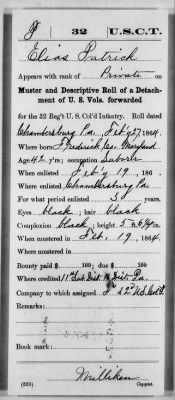 P 32 U.S.C.T.
Elias Patrick
Appears with rank of Private on
Muster and Descriptive Roll of a Detach-
ment of U. S. Vols. forwarded
for the 32 Reg't U. S. Col'd Infantry. Roll dated
Chambersburg Pa. Feb'y 27, 1864.
Where born Frederick Co. Maryland
Age 42 y'rs; occupation Laborer
When enlisted Feb'y 19, 186 .
Where enlisted Chambersburg Pa
For what period enlisted 3 years.
Eyes black; hair black
Complexion black; height 5 ft. in.
When mustered in Feb. 19, 1864.
Where mustered in
Bounty paid $ 100; due $ 100
Where credited Dist. Pa.
Company to which assigned
Remarks:
Book mark:
Milliken
Copyist.